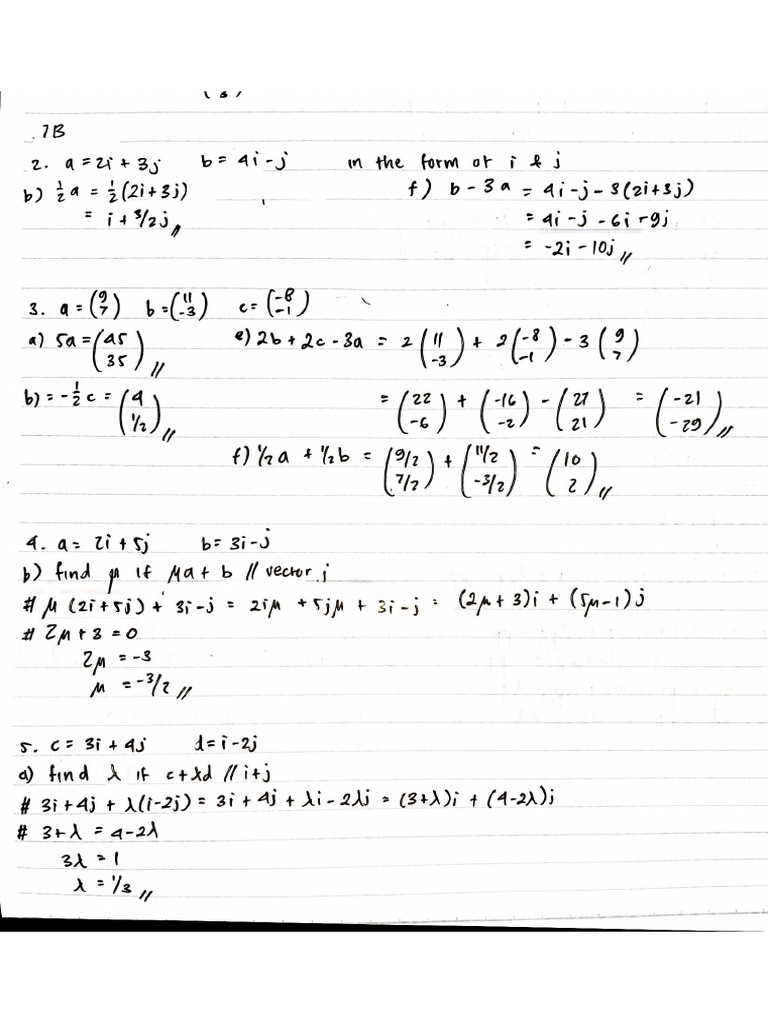 7B
2. a = 2i + 3j b = 4i - j in the form of i & j
b) ½a = ½(2i+3j)
= i + 3/2j //
f) b - 3a = 4i - j - 3(2i+3j)
= 4i - j - 6i - 9j
= -2i - 10j //
3. a = (9 7) b = (11 -3) c = (-8 -1)
a) 5a = (45 35) //
b) = -½c = (4 1/2) //
e) 2b + 2c - 3a = 2(11 -3) + 2(-8 -1) - 3(9 7)
= (22 -6) + (-16 -2) - (27 21) = (-21 -29) //
f) ½a + ½b = (9/2 7/2) + (11/2 -3/2) = (10 2) //
4. a = 2i + 5j b = 3i - j
b) find μ if μa + b // vector j
# μ(2i+5j) + 3i - j = 2iμ + 5jμ + 3i - j = (2μ+3)i + (5μ-1)j
# 2μ + 3 = 0
2μ = -3
μ = -3/2 //
5. c = 3i + 4j d = i - 2j
a) find λ if c + λd // i+j
# 3i + 4j + λ(i-2j) = 3i + 4j + λi - 2λj = (3+λ)i + (4-2λ)j
# 3+λ = 4-2λ
3λ = 1
λ = 1/3 //